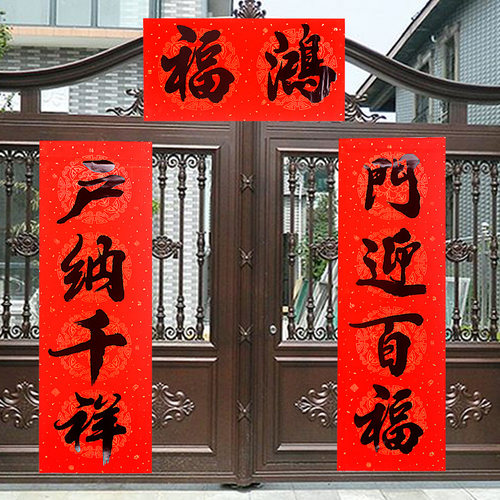 鴻福
門迎百福
户納千祥